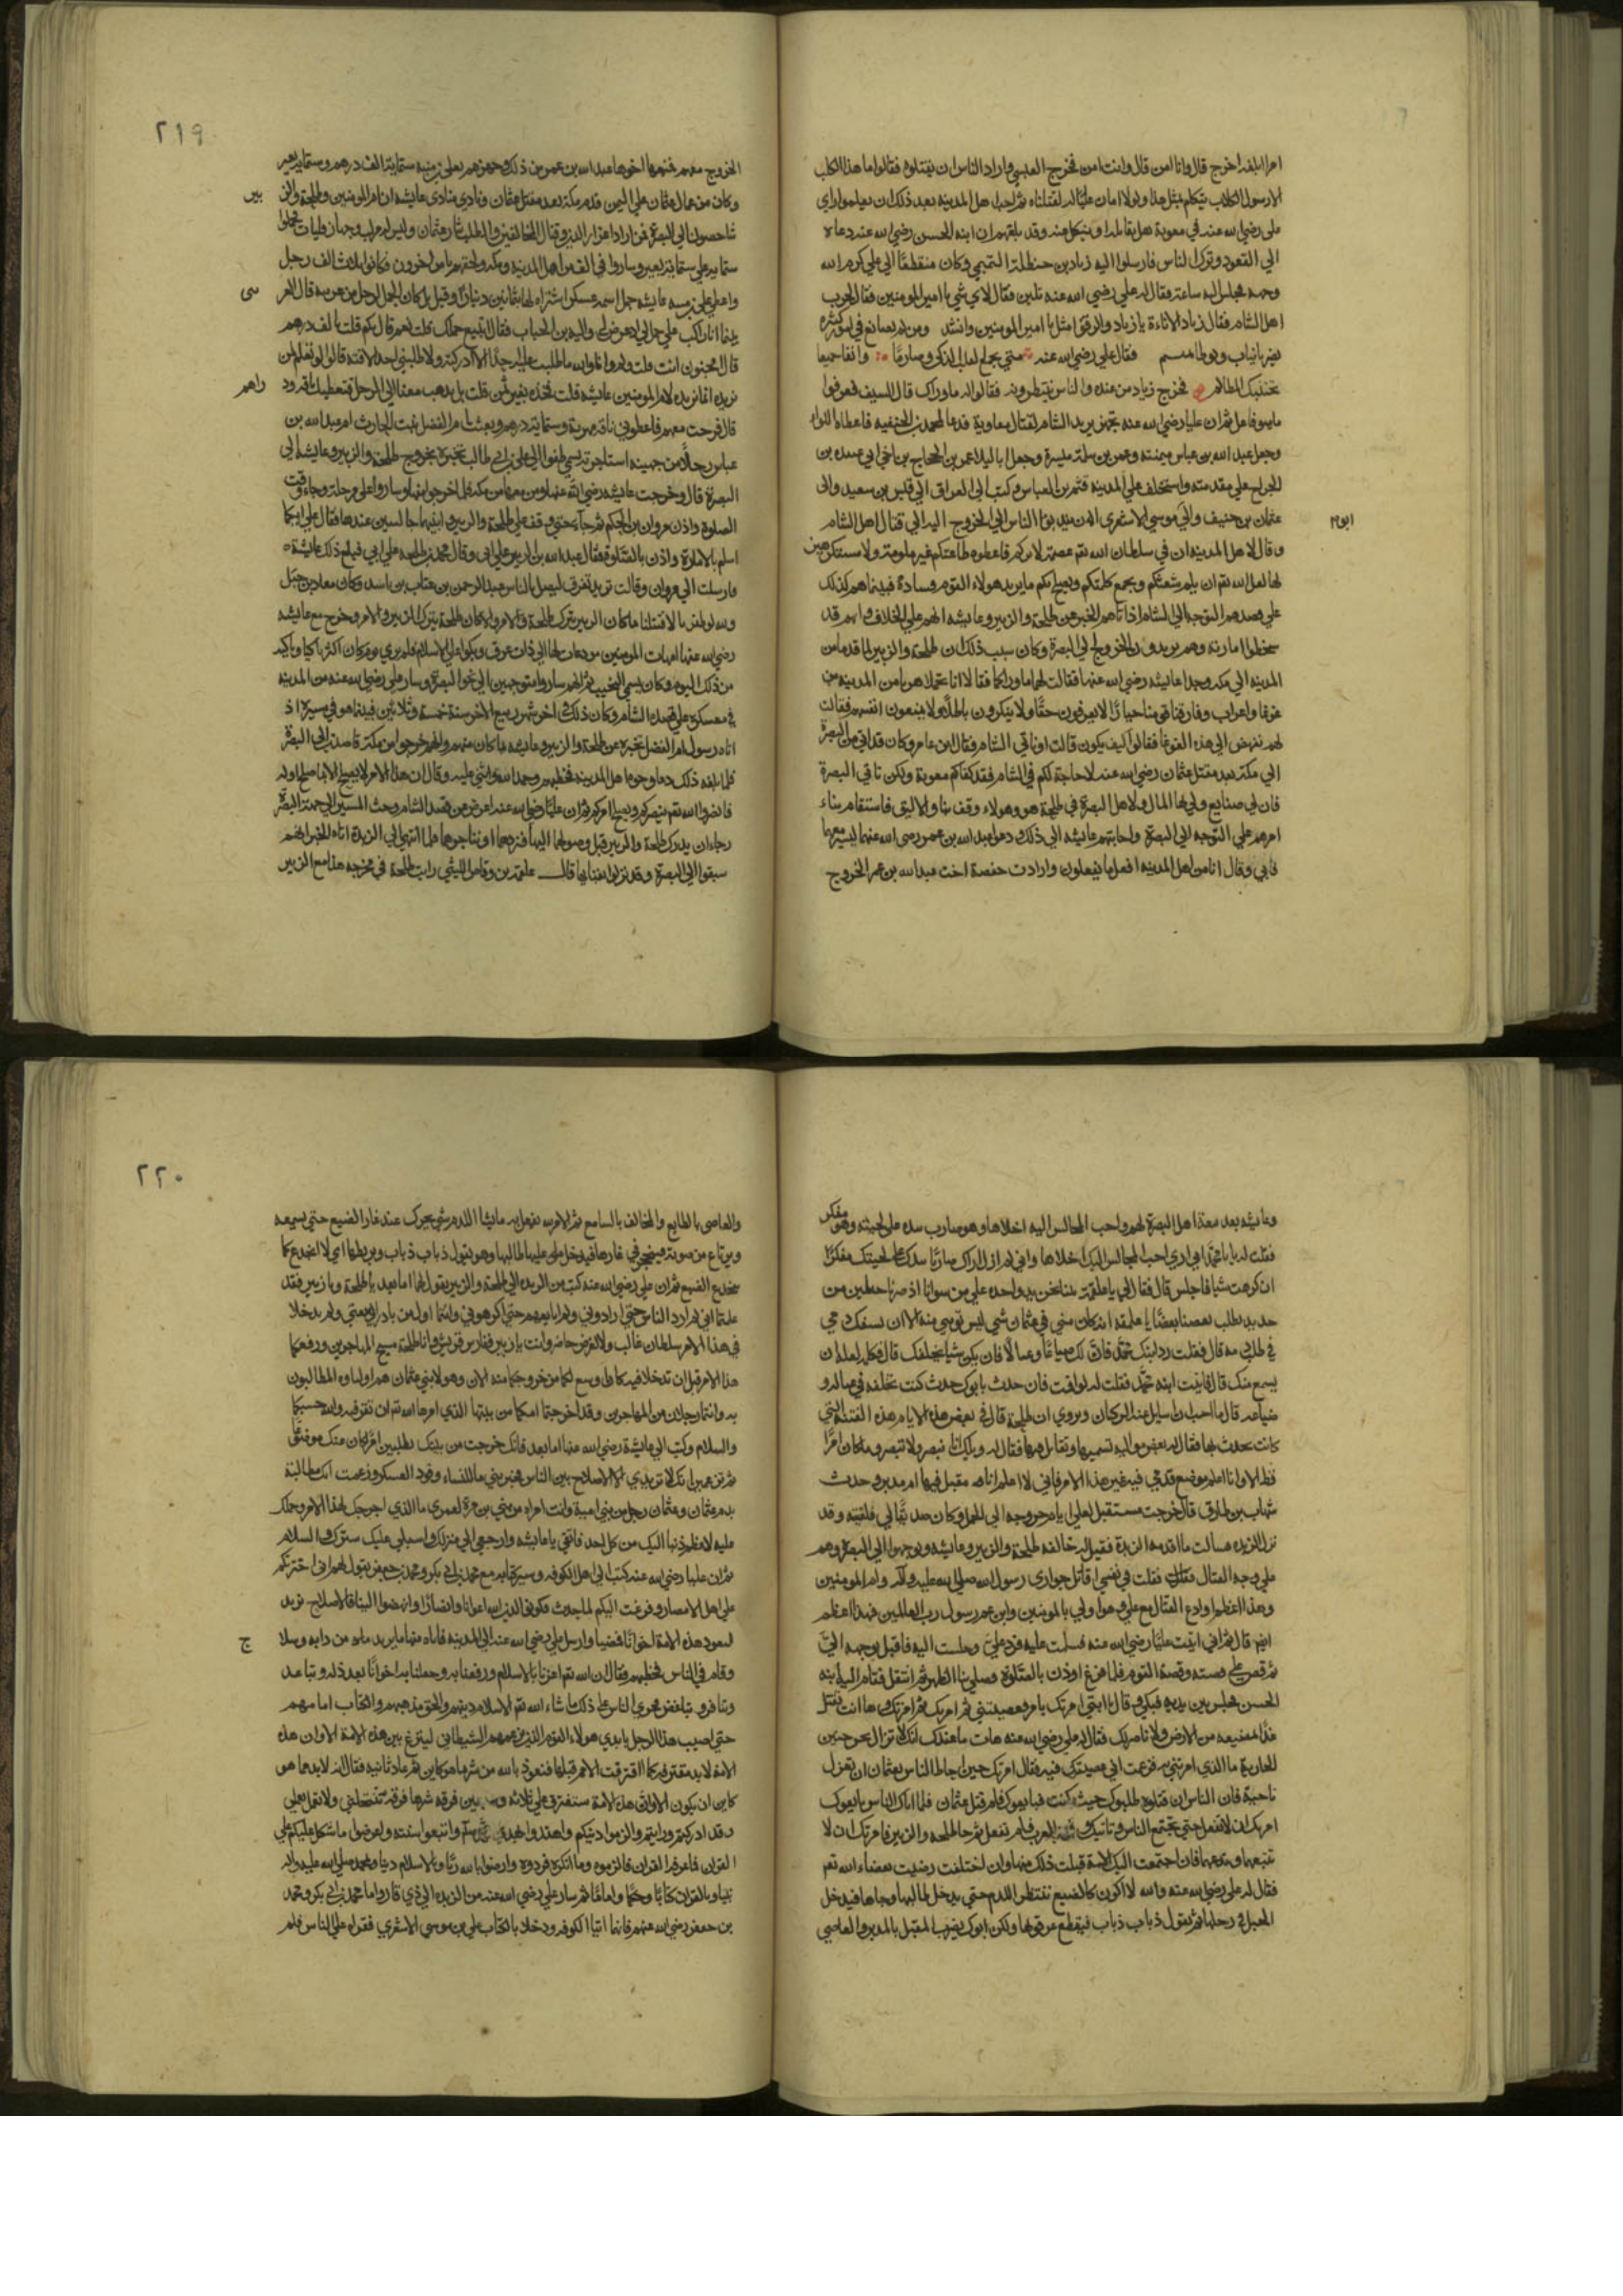 امرا ابلغه اخرج قال وانا امن قال وانت امن فخرج العبسي واراد الناس ان يقتلوه فقالوا ما هذا الكلب
لا رسول الكلاب يتكلم بمثل هذا ولولا امان علي له لقتلناه ثم احب اهل المدينة بعد ذلك ان يعلموا راي
علي رضي الله عنه في معوية هل يقاتله او ينكل عنه وقد بلغهم ان ابنه الحسن رضي الله عنه دعاه
الي القعود وترك الناس فارسلوا اليه زياد بن حنظلة التميمي وكان منقطعا الي علي كرم الله
وجهه فجلس اليه ساعة فقال له علي رضي الله عنه تلبن فقال لاي شي يا امير المومنين فقال لحرب
اهل الشام فقال زياد الاناءة يا زياد والرفق امثل يا امير المومنين وانشد ومن لم يصانع في امور كثيره
يضرس بانياب ويوطا بمنسم فقال علي رضي الله عنه متي تجمع القلب الذكي وصارما وانفا حميا
تجتنبك المظالم فخرج زياد من عنده والناس ينتظرونه فقالوا له ما وراك قال السيف فعرفوا
ما هو فاعل ثم ان عليا رضي الله عنه تجهز يريد الشام لقتال معاوية فدعا محمد بن الحنفيه فاعطاه اللواء
وجعل عبد الله بن عباس ميمنته وعمر بن سلمة ميسرة وجعل ابا ليلا عمر بن الجراح بن اخي ابي عبيده بن
الجراح علي مقدمته واستخلف علي المدينة قثم بن العباس وكتب الي العراق الي قيس بن سعيد والي
ابوم
عثمان بن حنيف والي موسي الاشعري ان يندبوا الناس الي الخروج اليه الي قتال اهل الشام
وقال لاهل المدينة ان في سلطان الله تم عصمة لامركم فاعطوه طاعتكم غير ملومة ولا مستكرهين
لها لعل الله تم ان يلم شعثكم ويجمع كلمتكم ويصلح بكم ما يريد هولاء القوم فساده فبينما هم كذلك
علي قصدهم التوجه الي الشام اذ اتاهم الخبر عن طلحة والزبير وعايشة انهم علي الخلاف وانهم قد
سخطوا امارته وهم يريدون الخروج الي البصرة وكان سبب ذلك ان طلحة والزبير لما قدما من
المدينة الي مكه وجدا عايشه رضي الله عنها فقالت لهما ما وراكما فقالا انا تحملنا هربا من المدينه من
غوغا واعراب وفارقنا قوما حيارا لا يعرفون حقا ولا ينكرون باطلا ولا يمنعون انفسهم فقالت
لهم ننهض الي هذه الغوغا فقالوا كيف يكون قالت او ناتي الشام فقال ابن عامر وكان قد اتي من البصرة
الي مكة بعد مقتل عثمان رضي الله عنه لا حاجة لكم في الشام فقد كفاكم معوية ولكن ناتي البصرة
فان لي صنايع ولي بها المال ولاهل البصرة في طلحة هو وهولاء وقف بنا والاليق فاستقام بناء
امرهم علي التوجه الي البصرة ولجابتهم عايشه الي ذلك ودعوا عبد الله بن عمر رضي الله عنهما ليسير معهما
فابي وقال انا من اهل المدينه افعل ما يفعلون وارادت حفصة اخت عبد الله بن عمر الخروج
٢١٩
الخروج معهم فمنعها اخوها عبد الله بن عمر من ذلك وجهزهم يعلي بن منيه بستماية الف درهم وستماية بعير
بير
وكان من عمال عثمان علي اليمن قدم مكة بعد مقتل عثمان ونادي منادي عايشه ان ام المومنين وطلحة والز
شاخصون الي البصرة فمن اراد اعزاز الدين وقتال المخالفين والطلب بثار عثمان وليس له مركب وجهاز فليات فحملوا
ستمايه علي ستماية بعير وساروا في الف من اهل المدينه ومكه ولحقهم ناس اخرون فكانوا ثلاث الف رجل
سى
واعطي يعلي بن منيه عايشه جمل اسمه عسكر اشتراه لها بثمانين دينارا وقيل بل كان الجمل لرجل من عرينه قال العر
بينما انا راكب علي جمل لي اذ عرض لي واليه بن الحباب فقال اتبيع جملك قلت نعم قال بكم قلت بالف درهم
قال مجنون انت قلت ولم والله ما طلبت عليه احدا الا ادركته ولا طلبني احد الا فته قال لو تعلم لمن
راهم
نريده انما نريده لام المومنين عايشه قلت فخذه بغير ثمن قلت بل يذهب معنا الي الرحل فنعطيك ناقه ود
قال فرحت معهم فاعطوني ناقة مهرية وستماية درهم وبعثت ام الفضل بنت الحارث ام عبد الله بن
عباس رجلا من جهينه استاجرته يسمي ظفرا الي علي بن ابي طالب تخبره بخروج طلحة والزبير وعايشه الي
البصرة قال وخرجت عايشه رضي الله عنها ومن معها من مكه فلما خرجوا منها وساروا علي مرحلة وجاء وقت
الصلوة واذن مروان بن الحكم ثم جآء حتي وقف علي طلحة والزبير وابنهما جالسين عندها فقال علي ايكما
اسلم بالامارة واذن بالصلوة فقال عبد الله بن الزبير علي ابي وقال محمد بن طلحة علي ابي فبلغ ذلك عايشة
فارسلت الي مروان وقالت تريد تفرق ليصل الناس عبد الرحمن بن عتاب بن اسيد وكان معاذ بن جبل
والله لو ظفرنا لاقتتلنا ما كان الزبير يترك طلحة والامر ولا كان طلحة يترك الزبير والامر وخرج مع عايشه
رضي الله عنها امهات المومنين مودعات لها الي ذات عرق وبكوا علي الاسلام فلم يري يوم كان اكثر باكيا وباكيه
من ذلك اليوم وكان يسمي النحيب ثم انهم ساروا متوجهين الي نحو البصرة وسار علي رضي الله عنه من المدينه
في معسكره علي قصد الشام وكان ذلك في اخر شهر ربيع الاخر سنة خمسة وثلاثين فبينما هو في سيره اذ
اتاه رسول ام الفضل تخبره عن طلحة والزبير وعايشه بما كان منهم وانهم خرجوا من مكة قاصدين الي البصرة
فلما بلغه ذلك دعا وجوه اهل المدينه فخطبهم وحمد الله واثني عليه وقال ان هذا الامر لا يصلح الا بما صلح اوله
فانصروا الله تم ينصركم ويصلح امركم ثم ان عليا رضي الله عنه اعرض عن قصد الشام وحث المسير الي جهة البصرة
رجاء ان يدرك طلحة والزبير قبل وصولهما اليها فيردهما او يناجزهما فلما انتهي الي الربذة اتاه الخبر انهم
سبقوا الي البصرة وقد نزلوا بفنايها قال علقمة بن وقاص الليثي رايت طلحة في مخرجه هذا مع الزبير
وعايشه بعد مقدم اهل البصرة لهم واحب المجالس اليه اخلاها وهو ضارب بيده علي لحيته وهو مفكر
فقلت له يا با محمد اني اري احب المجالس اليك اخلاها واني لم ازل اراك ضاربا بيدك علي لحيتك مفكرا
ان كرهت شيا فاجلس قال فقال لي يا علقمة بينا نحن يد واحدة علي من سوانا اذ صرنا جبلين من
حديد يطلب بعضنا بعضا يا علقمة انه كان مني في عثمان شي ليس توبتي منه الا ان يسفك دمي
في طلب دمه قال فقلت رد ابنك محمد فان لك ضياعا وعيالا فان يكن شيا يخلفك قال فكلمه لعله ان
يسمع منك قال فاتيت ابنه محمد فقلت له لو اقمت فان حدث بابوك حدث كنت تخلفه في عياله و
ضياعه قال ما احب ان اسيل عنه الركبان ويروي ان طلحة قال في بعض هذه الايام هذه الفتنة التي
كانت تحدث بها فقال له بعض مواليه تسميها وتقاتل فيها فقال له ويلك انا نبصر ولا تبصر وما كان امرا
قط الا وانا اعلم موضع قدمي فيه غير هذا الامر فاني لا اعلم انا مقبل فيها ام مدبر وحدث
شهاب بن طارق قال خرجت مستقبل لعلي ايام خروجه الي الجمل وكان صديقا لي فلقيته وقد
نزل الربذه فسالت ما اقدمه الربذة فقيل له خالفه طلحة والزبير وعايشه وتوجهوا الي البصرة وهم
علي وجه القتال فقلت في نفسي اقاتل حواري رسول الله صلي الله عليه وآله وام المومنين
وهذا اعظم او ادع القتال مع علي وهو اولي بالمومنين وابن عم رسول رب العالمين فهذا اعظم
ايم قال ثم اني اتيت عليا رضي الله عنه فسلمت عليه فرد علي وجلست اليه فاقبل بوجهه الي
ثم قص علي قصته وقصة القوم فلما فرغ اوذن بالصلوة وصلي بنا الظهر ثم انتقل فقام اليه ابنه
الحسن فجلس بين يديه فبكي وقال يا ابتي امرتك بامر فعصيتني ثم امرتك ثم امرتك وها انت تقتل
غدا بمضيعه من الارض ولا ناصر لك فقال له علي رضي الله عنه هات ما عندك انك لا تزال تحن حنين
الجارية ما الذي امرتني به فزعمت اني عصيتك فيه فقال امرتك حين احاط الناس بعثمان ان تعزل
ناحية فان الناس ان قتلوه طلبوك حيث كنت فيبايعوك فلم قتل عثمان فلما اتاك الناس بايعوك
امرتك ان لا تفعل حتي يجتمع الناس وتاتيك وفود العرب فلم تفعل ثم جا طلحه والزبير فامرتك ان لا
تتبعهما وتدعهما فان اجتمعت اليك الامة قبلت ذلك منها وان اختلفت رضيت بقضاء الله تم
فقال له علي رضي الله عنه والله لا اكون كالضبع تنتظر اللدم حتي يدخل طالبها وجاها فيدخل
الحبل في رجلها ثم يقول ذباب ذباب فيقطع عرقوبها ولكن ابوك يضرب المقبل بالمدبر والعاصي
٢٢٠
والعاصي بالطايع والمخالف بالسامع ثم الامر لله يفعل به ما يشا اللدم شي يحرك عند غار الضبع حتي يسمعه
ويرتاع من صوته فينحجر في غارها فيدخل علي عليها طالبها وهو يقول ذباب ذباب ويربطها اي لا اخدع كما
تخدع الضبع ثم ان علي رضي الله عنه كتب من الربذه الي طلحة والزبير يقول لهما اما بعد يا طلحة ويا زبير فقد
علمتما اني لم ارد الناس حتي ارادوني ولم ابايعهم حتي اكرهوني وانتما اول من بادر ببيعتي ولم تدخلا
في هذا الامر بسلطان غالب ولا لعرض حاضر وانت يا زبير فارس قريش وانت يا طلحة شيخ المهاجرين ورفعكما
هذا الامر قبل ان تدخلا فيه كان اوسع لكما من خروجكما منه الان وهولا بني عثمان هم اولياوه المطالبون
به وانتما رجلان من المهاجرين وقد اخرجتما امكما من بيتها الذي امرها الله تم ان تقر فيه والله حسبكما
والسلام وكتب الي عايشة رضي الله عنها اما بعد فانك خرجت من بيتك تطلبين امرا كان عنك موضوعا
ثم تزعمين انك لا تريدي الا الاصلاح بين الناس فخبريني ما للنساء وقود العسكر وزعمت انك مطالبة
بدم عثمان وعثمان رجل من بني امية وانت امراه من بني تيم بن مرة لعمري ما الذي اخرجك لهذا الامر وحملك
عليه لاعظم ذنبا اليك من كل احد فاتقي يا عايشه وارجعي الي منزلك واسبلي عليك سترك والسلام
ثم ان عليا رضي الله عنه كتب الي اهل الكوفه وسيره مع محمد بن ابي بكر ومحمد بن جعفر يقول لهم اني اخترتكم
علي اهل الامصار وفزعت اليكم لما حدث فكونوا لدين الله اعوانا وانصارا وانهضوا الينا فالاصلاح نريد
ح
لتعود هذه الامة اخوانا فمضيا وارسل علي رضي الله عنه الي المدينه فاتاه منها ما يريده من دابه وسلا
وقام في الناس فخطبهم فقال ان الله تم اعزنا بالاسلام ورفعنا به وجعلنا به اخوانا بعد ذلة وتباعد
وتنافر وتباغض فجري الناس علي ذلك ما شاء الله تم الاسلام دينهم والحق مذهبهم والكتاب امامهم
حتي اصيب هذا الرجل بايدي هولاء القوم الذين نزغهم الشيطان لينزغ بين هذه الامة الا وان هذه
الامة لا بد مفترقه كما افترقت الامم قبلها فنعوذ بالله من شر ما هو كاين ثم عاد ثانيه فقال انه لا بد مما هو
كاين ان يكون الا وان هذه الامة ستفترق علي ثلاثه وسبعين فرقه شرها فرقه تنتحلني ولا تعمل بعملي
وقد ادركتم ورايتم والزموا دينكم واهتدوا بهدي نبيكم واتبعوا سنته واعرضوا ما شكل عليكم علي
القران فما عرفه القران فالزموه وما انكره فردوه وارضوا بالله ربا وبالاسلام دينا وبمحمد صلي الله عليه واله
نبيا وبالقران كتابا وحكما واماما ثم سار علي رضي الله عنه من الربذه الي ذي قار واما محمد بن ابي بكر ومحمد
بن جعفر رضي الله عنهم فانهما اتيا الكوفه ودخلا بالكتاب علي بن موسي الاشعري فقراه علي الناس فلم